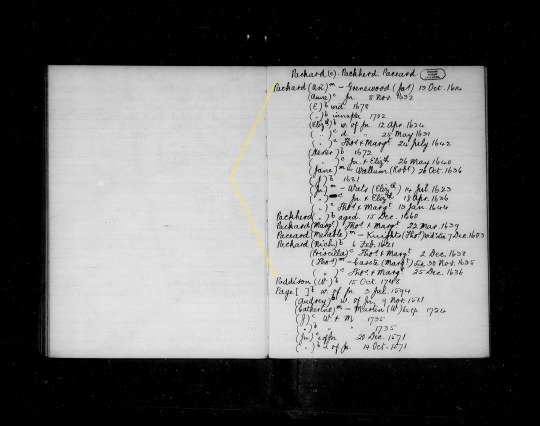 Packard(e). Packherd. Paceard.
Packard (An)ᵐ – Grenewood (Jas) 13 Oct. 1614
(Anne)ᶜ Jn. 8 Nov. 1632
(E)ᵇ wid. 1678
( . )ᵇ 1702
(Elizᵗʰ)ᵇ w. of Jn. 12 Apr. 1624
( . )ᶜ d " 25 May 1631
( . )ᶜ Thoˢ & Margᵗ 24 July 1642
ᵇ 1672
( . )ᶜ Jn. & Elizᵗʰ 26 May 1640
(Jane)ᵐ – Wallum (Robᵗ) 26 Oct. 1636
(J)ᵇ 1621
(Jn)ᵐ – Wals (Elizᵗʰ) 14 Jul 1623
( . )ᶜ Jn & Elizᵗʰ 18 Apr. 1636
( . )ᶜ Thoˢ & Margᵗ 13 Jan 1644
Packherd ( . )ᵇ aged. 15 Dec. 1660
Packard (Margᵗ)ᶜ Thoˢ & Margᵗ 22 Mar. 1639
Paceard (Merable)ᵐ – Knights (Thoˢ) 7 Dec. 1603
Packard (Rich)ᵇ 6 Feb. 1621
(Priscilla)ᶜ Thoˢ & Margᵗ 2 Dec. 1638
(Thoˢ)ᵐ – (Margᵗ) 30 Nov. 1635
( . )ᶜ Thoˢ & Margᵗ 25 Dec. 1636
Paddison (W)ᵇ 15 Oct. 1748
Page [ ]ᵇ w. of Jn. 3 Jul 1594
(Audrey)ᵇ w. of Jn. 9 Nov. 1581
(Catherine)ᵐ – Martin (W) 1724
(J)ᶜ W. & M 1735
( . )ᵇ " " 1735
(Jn)ᶜ of Jn. 20 Dec. 1571
( . )ᵇ – of Jn. 14 Oct. 1571